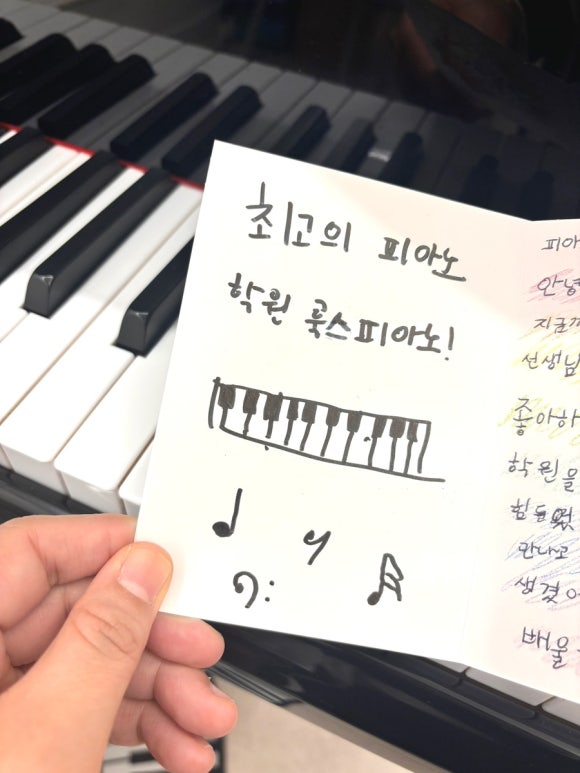 최고의 피아노
학원 룩스피아노!
피아
안녕
지금까
선생님
좋아하
학원을
힘들었
만나고
생겼어
배울